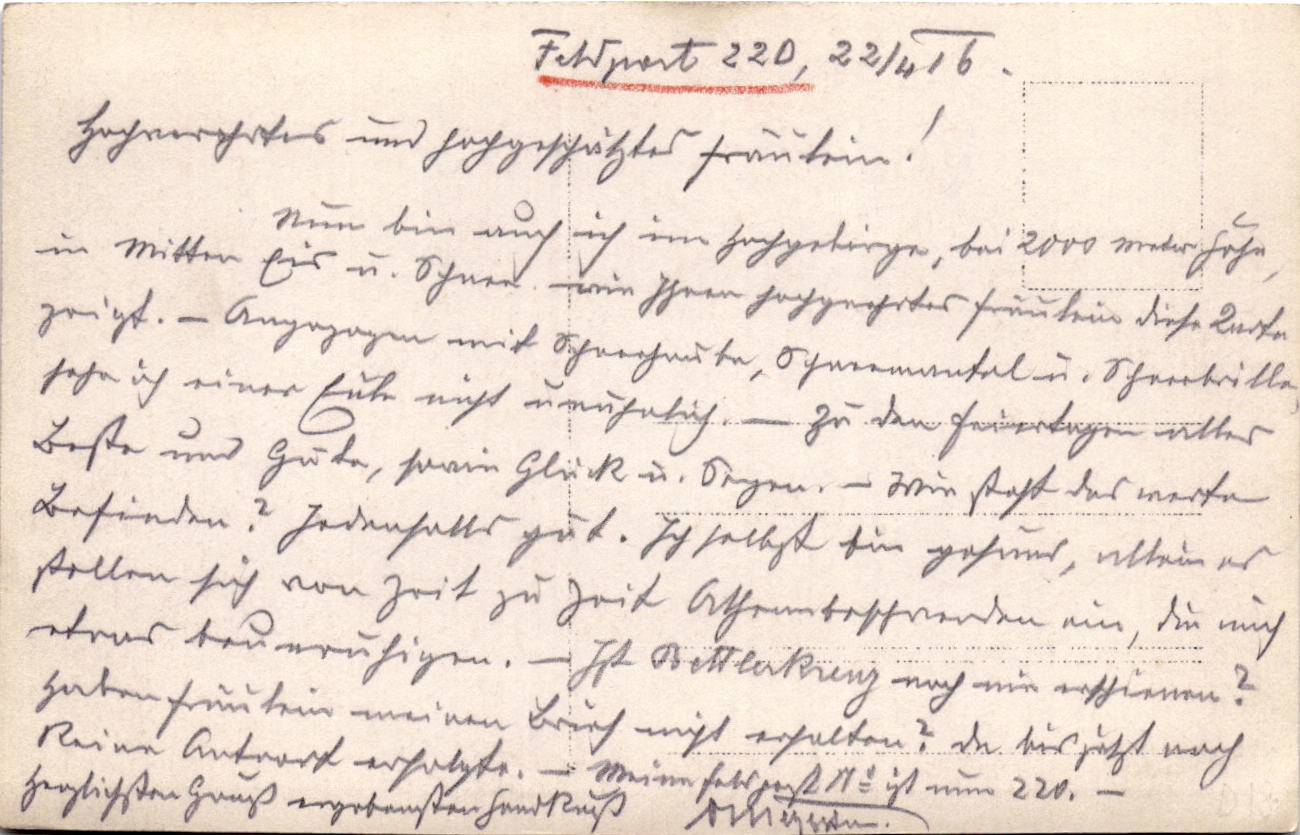 Feldpost 220, 22/4 16.
Hochverehrtes und hochgeschätztes Fräulein!
Nun bin auch ich im Hochgebirge, bei 2000 Meter Höhe,
in Mitten Eis u. Schnee wie Ihnen hochgeehrtes Fräulein diese Karte
zeigt. – Angezogen mit Schneehaube, Schneemantel u. Schneebrille,
sehe ich einer Eule nicht unähnlich. – Zu den Feiertagen alles
Beste und Gute, sowie Glück u. Segen. – Wie steht das werte
Befinden? Jedenfalls gut. Ich selbst bin gesund, allein es
stellen sich von Zeit zu Zeit Athembeschwerden ein, die mich
etwas beunruhigen. – Ist Bettlerkreuz noch nie erschienen?
Haben Fräulein meinen Brief nicht erhalten? da bis jetzt noch
keine Antwort erfolgte. – Meine Feldpost No ist nun 220. –
Herzlichsten Gruß ergebensten Handkuß